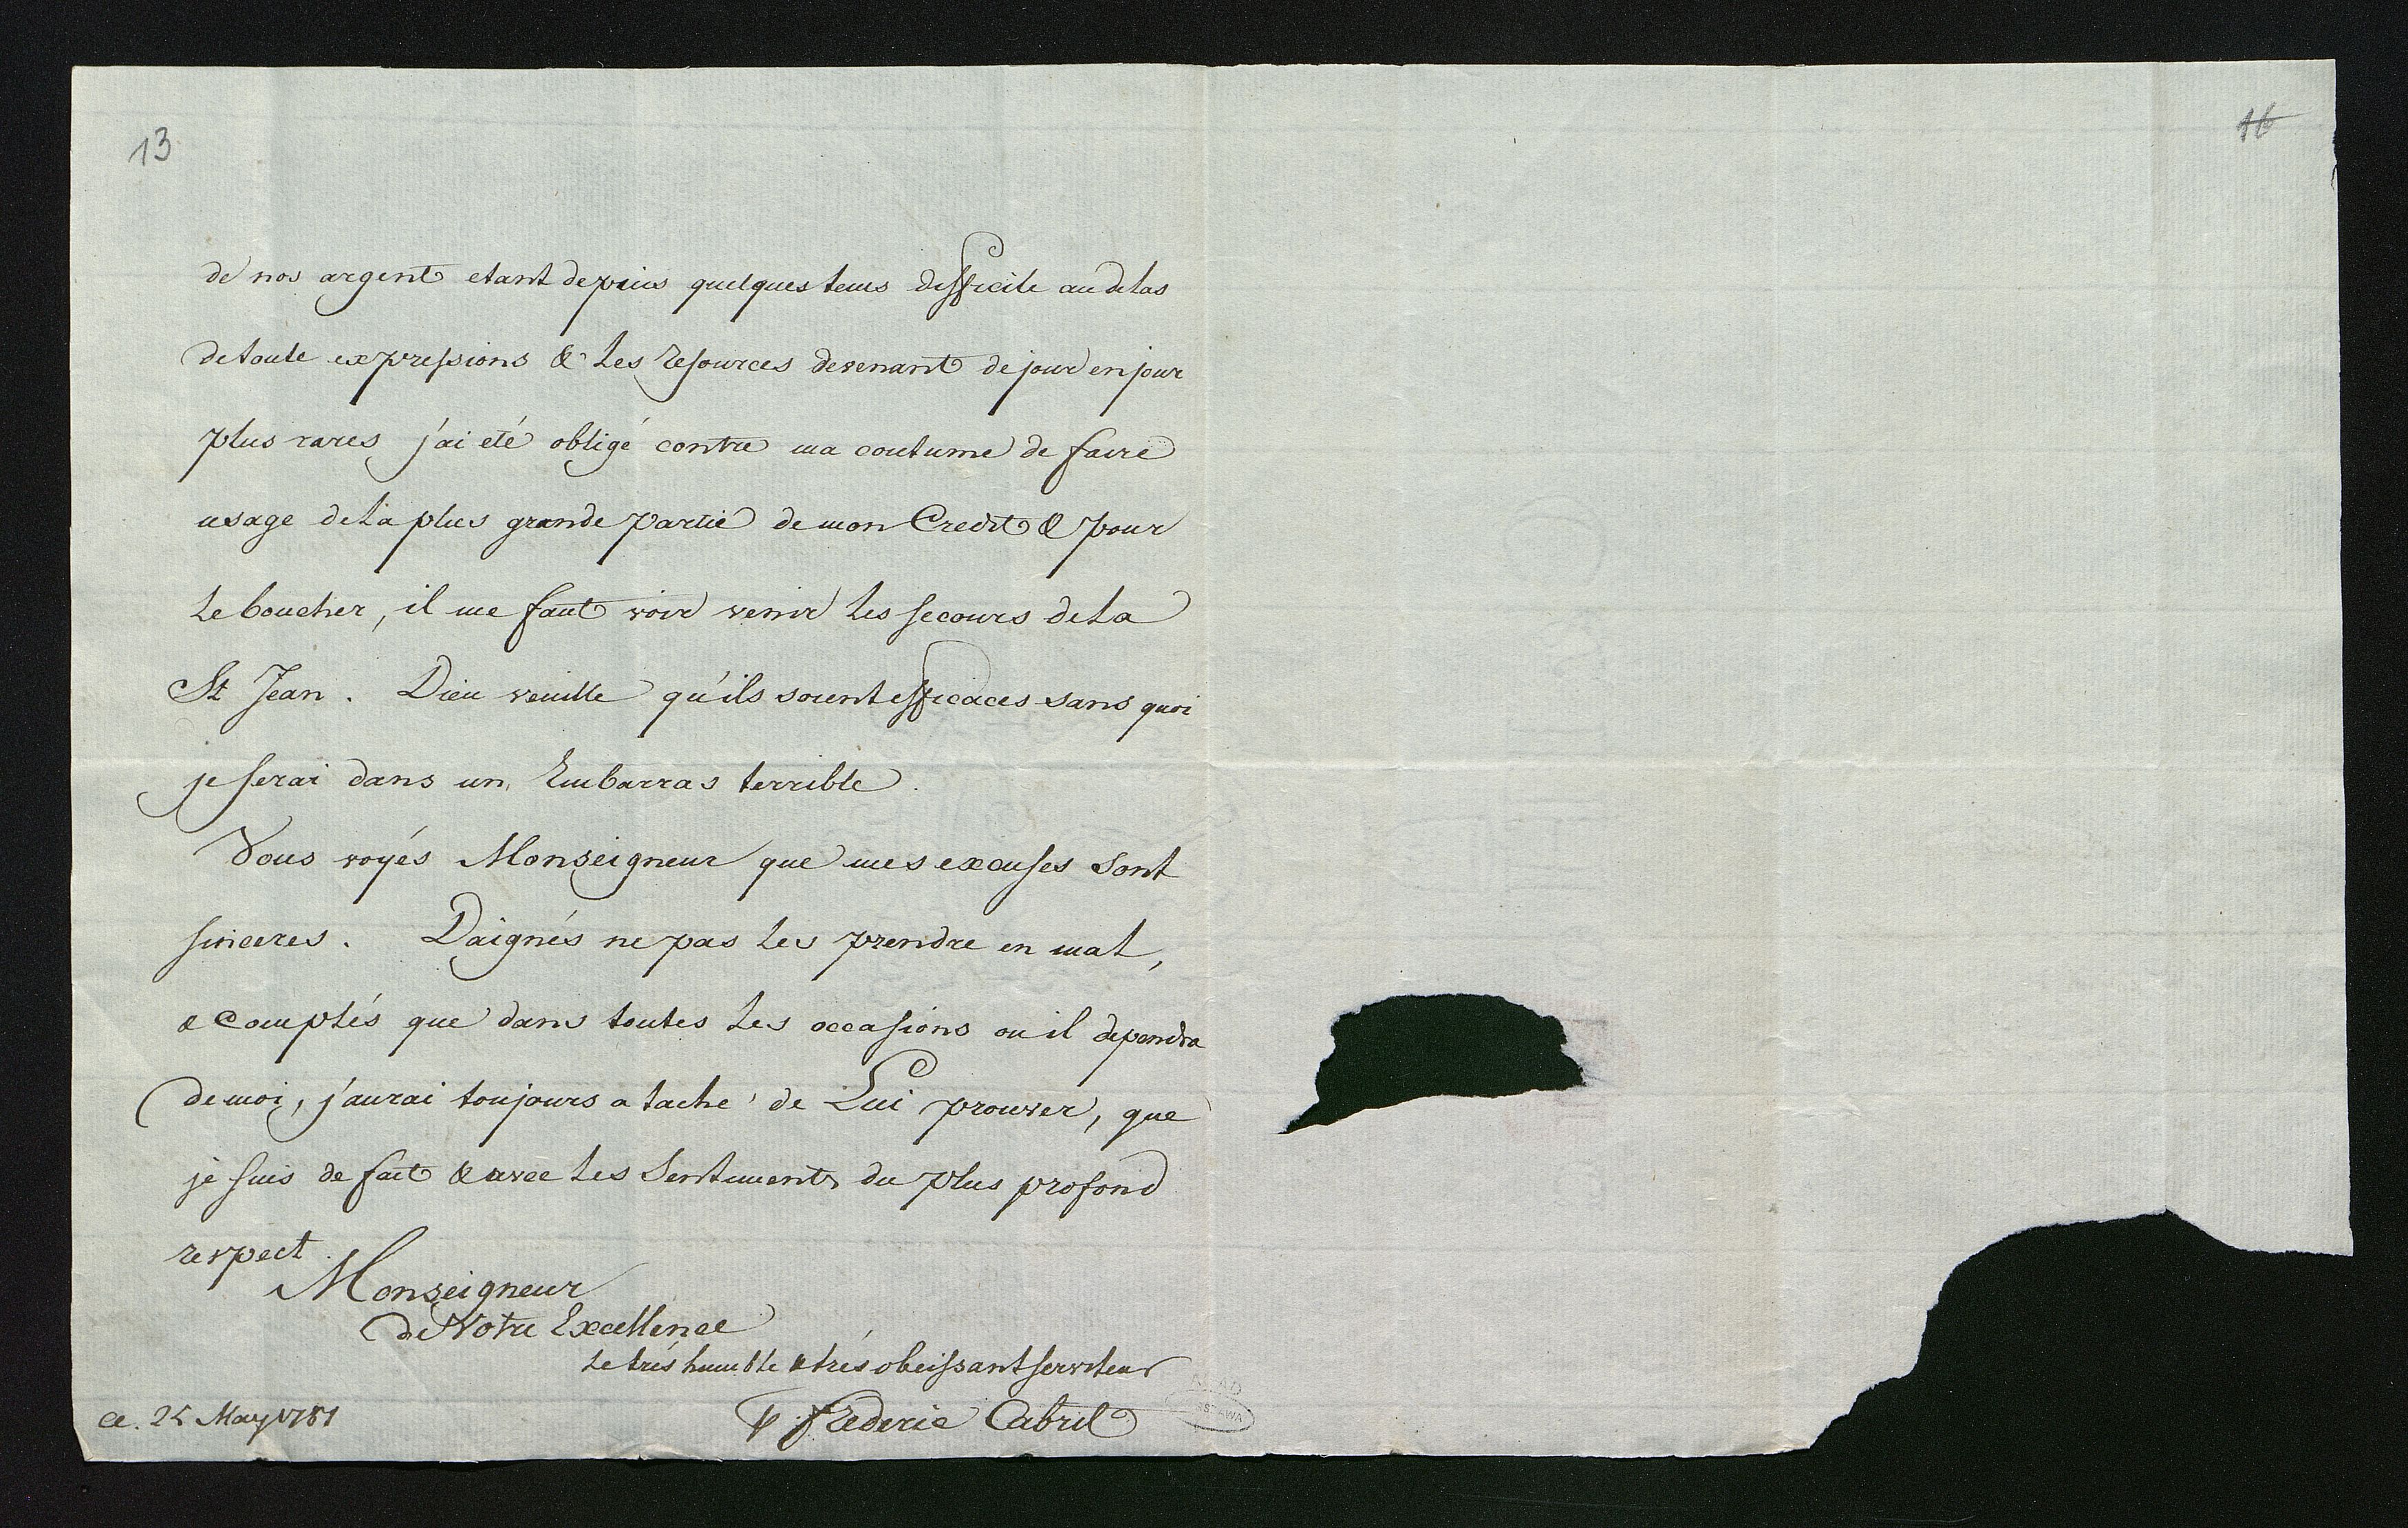 13
16
de nos argent etant depuis quelques tems difficile au delas
de toute expressions & les resources devenant de jour en jour
plus rares j'ai eté obligé contre ma coutume de faire
usage de la plus grande partie de mon Credit & pour
le boucher, il me faut voir venir les secours de la
St Jean. Dieu veuille qu'ils soient efficaces sans quoi
je serai dans un Embarras terrible.
Vous voyés Monseigneur que mes excuses sont
sinceres. Daignés ne pas les prendre en mal,
& comptés que dans toutes les occasions ou il dependra
de moi, j'aurai toujours a taché de Lui prouver, que
je suis de fait & avec les Sentiments du plus profond
respect.
Monseigneur
de Votre Excellence
le trés humble & trés obeissant serviteur
ce. 25 May 1781
P. Frederic Cabrit